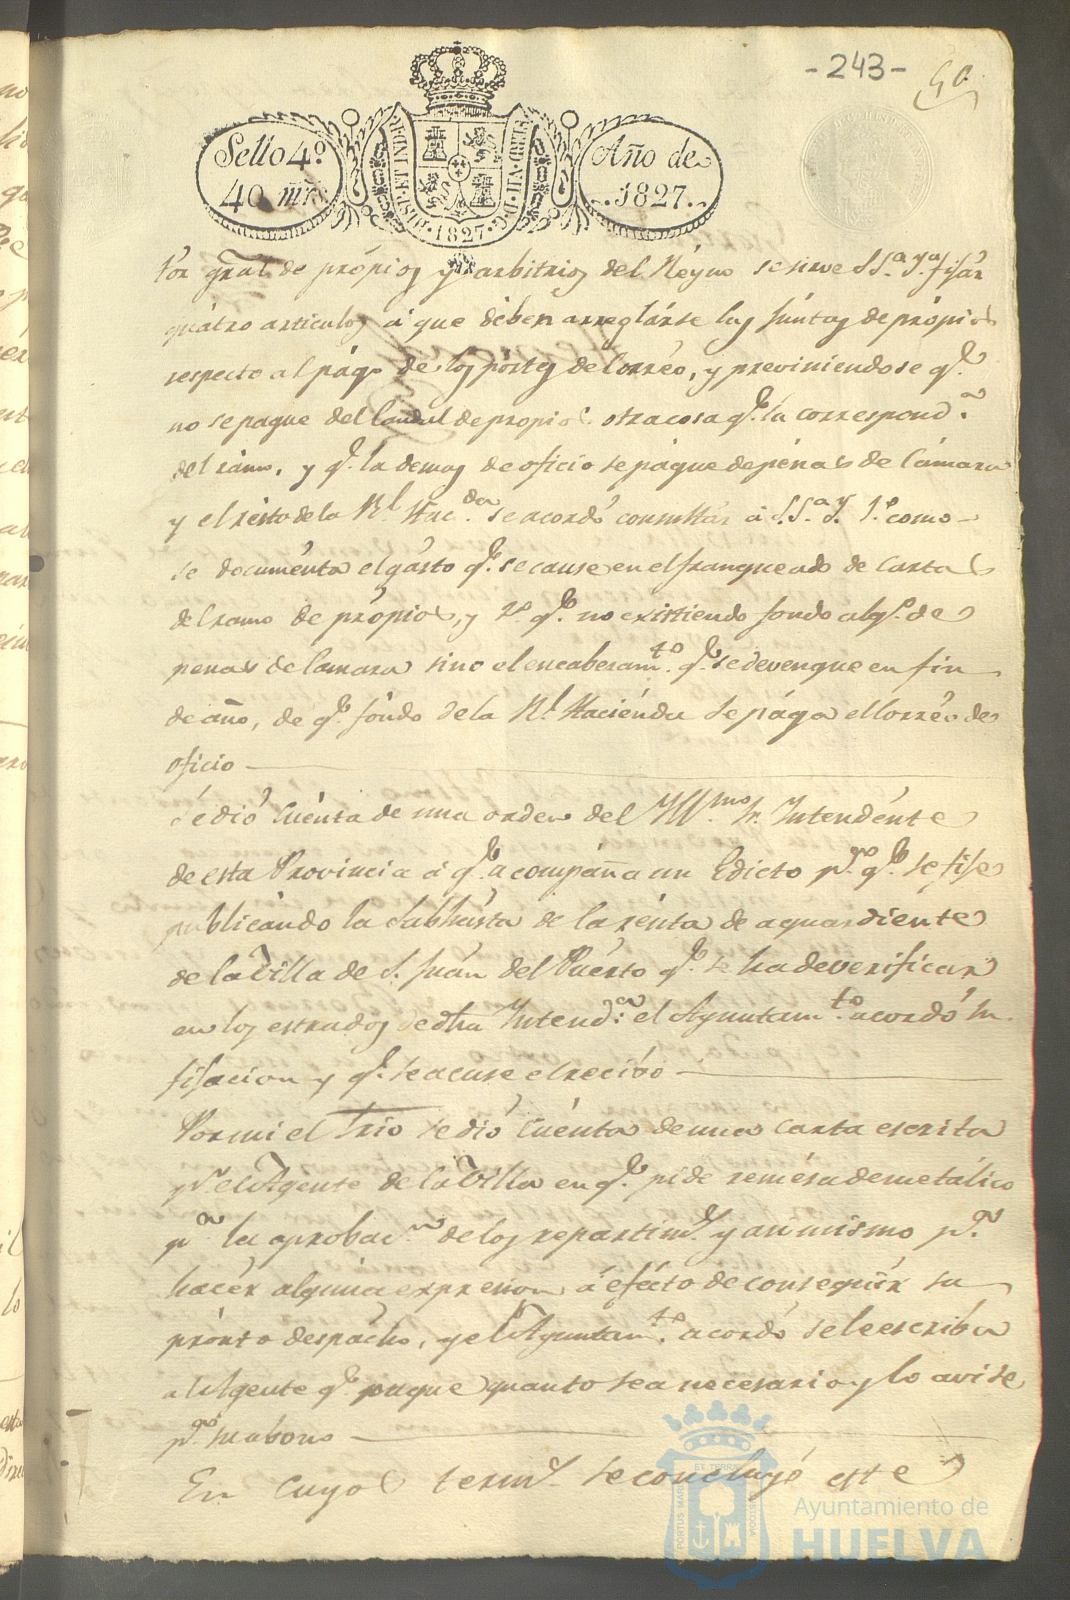 -243-
Sello 4º
40 mrs.
HISP. ET IND. R.
FERD. VII. D. G.
1827
Año de
1827.
tor gral de própios y arbitrios del Reyno se sirve S.Sª. Yª. fijár
quátro articulos á que dében arreglárse las Júntas de própios
respecto al págo de los pórtes de Corréo, y previniendose q.e
no se pague del Caudal de propios otra cosa q.e la correspond.a
del rámo, y q.e la demas de oficio se págue de pénas de Cámara
y el résto de la R.l Hac.da se acordó consultár á S.Sª. Y. 1.º como
se documénta el gásto q.e se cause en el franqueado de Cartas
del ramo de própios, y 2.º q.e no existiendo fondo alg.o de
penas de Camara sino el encabezam.to q.e se devengue en fin
de año, de q.e fóndo de la R.l Haciénda se pága el Corréo de
oficio
Se dió Cuénta de una orden del Yll.mo Sr. Yntendénte
de esta Provincia á q.e acompáña un Edicto p.a q.e se fije
publicándo la Subhásta de la rénta de aguardiente
de la Villa de S. Juán del Puérto q.e se ha de verificar
en los estrados de dha Yntend.a el Ayuntam.to acordó su
fijacion y q.e se acuse el recivo
Por mi el Srio se dió Cuénta de una carta escrita
p.r el Agente de la Villa en q.e pide remésa de metálico
p.a la aprobac.on de los repartim.s y asimismo p.a
hacér algúna expresion á efécto de conseguír su
prónto despácho, y el Ayuntam.to acordó se le escriba
al Agente q.e pague quanto sea necesario y lo avise
p.a su abono
En cuyos term.s se concluyó este
PORTUS MARIS
ET TERRAE
CUSTODIA
Ayuntamiento de
HUELVA